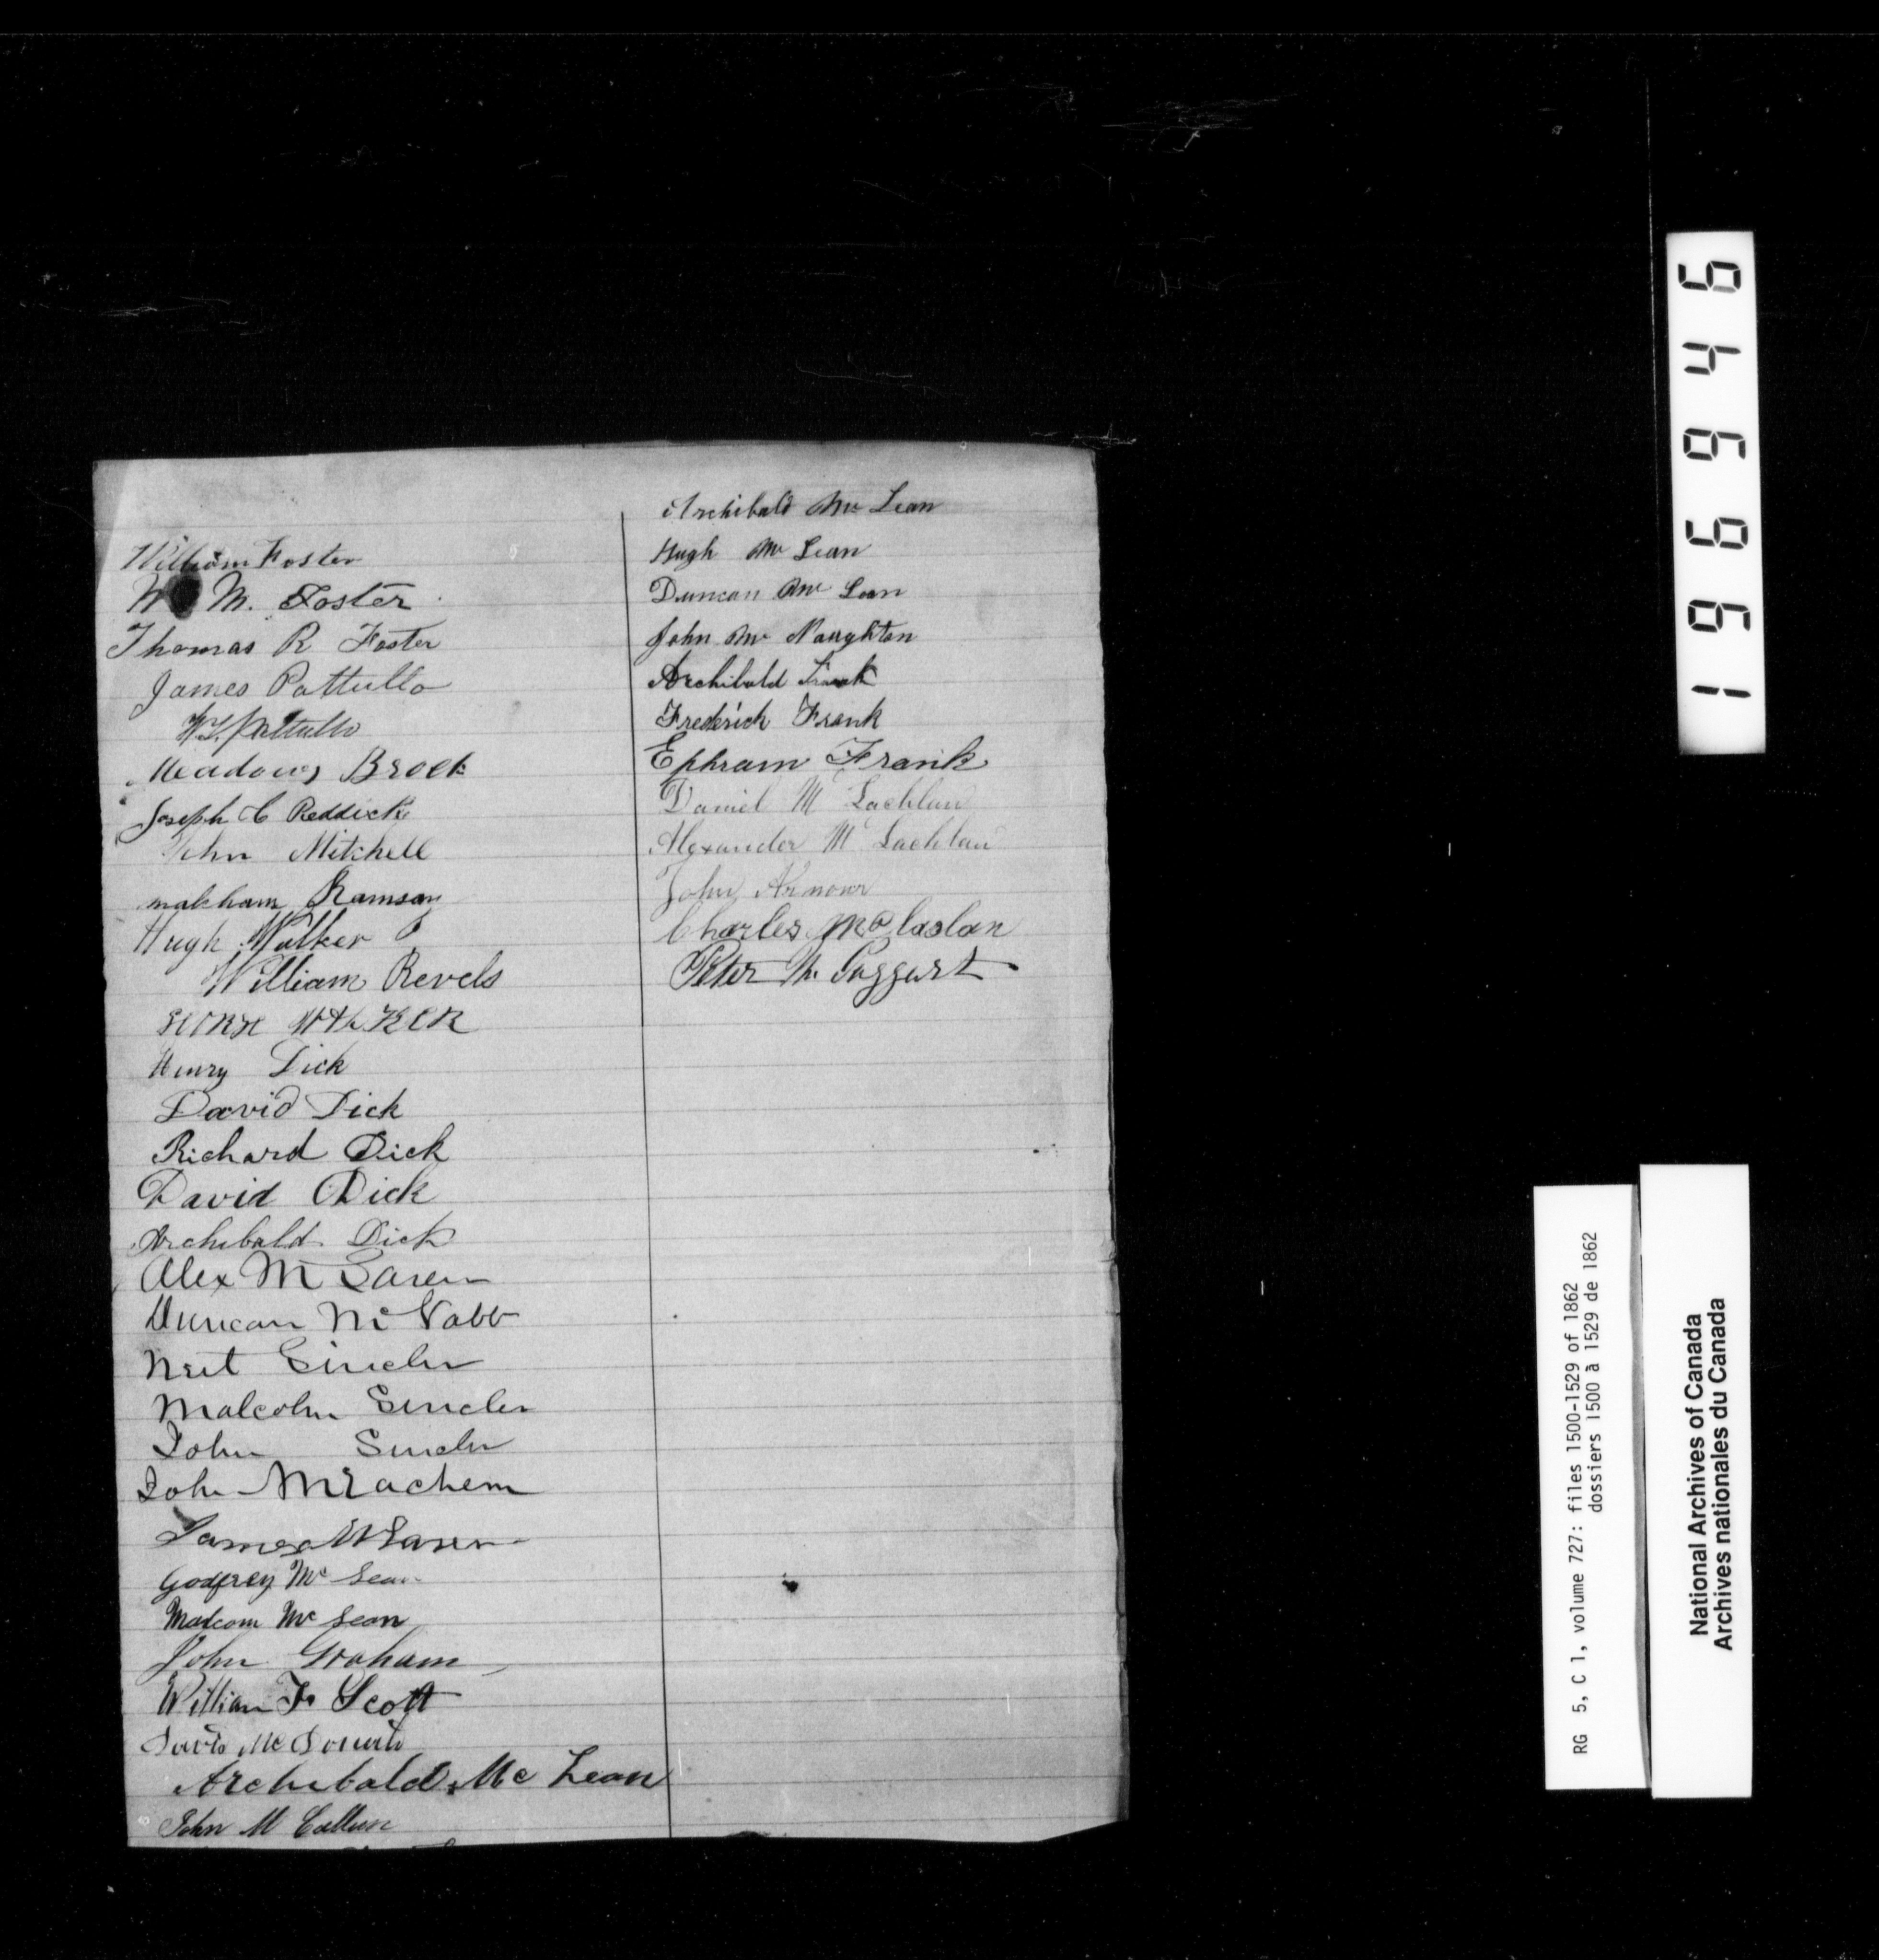 William Foster
W M. Foster
Thomas R Foster
James Pattullo
W. Pattullo
Meadows Brock
Joseph C Reddick
John Mitchell
makham Ramsay
Hugh Walker
William Revels
Henry Dick
David Dick
Richard Dick
David Dick
Archibald Dick
Alex Mc Laren
Duncan Mc Nabb
Neil Sincler
Malcolm Sincler
John Sincler
John McEachern
James McLaren
Godfrey Mc Lean
Malcom Mc Lean
John Graham
William F. Scott
Archibald Mc Lean
John Mc Callum
Archibald Mc Lean
Hugh Mc Lean
Duncan Mc Lean
John Mc Naughton
Archibald
Frederick Frank
Ephram Frank
Daniel Mc Lachlan
Alexander Mc Lachlan
John Armour
Charles McClaslan
Peter Mc Taggart
196946
RG 5, C 1, volume 727: files 1500-1529 of 1862
dossiers 1500 à 1529 de 1862
National Archives of Canada
Archives nationales du Canada